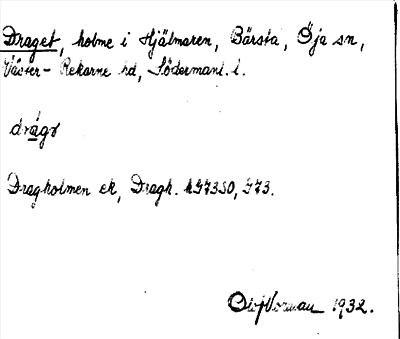 Draget, holme i Hjälmaren, Bärsta, Öja sn,
Väster-Rekarne hd, Södermanl. l.
drágə
Dragholmen ek, Dragh. hG73SO, G73.
Olof Norman 1932.